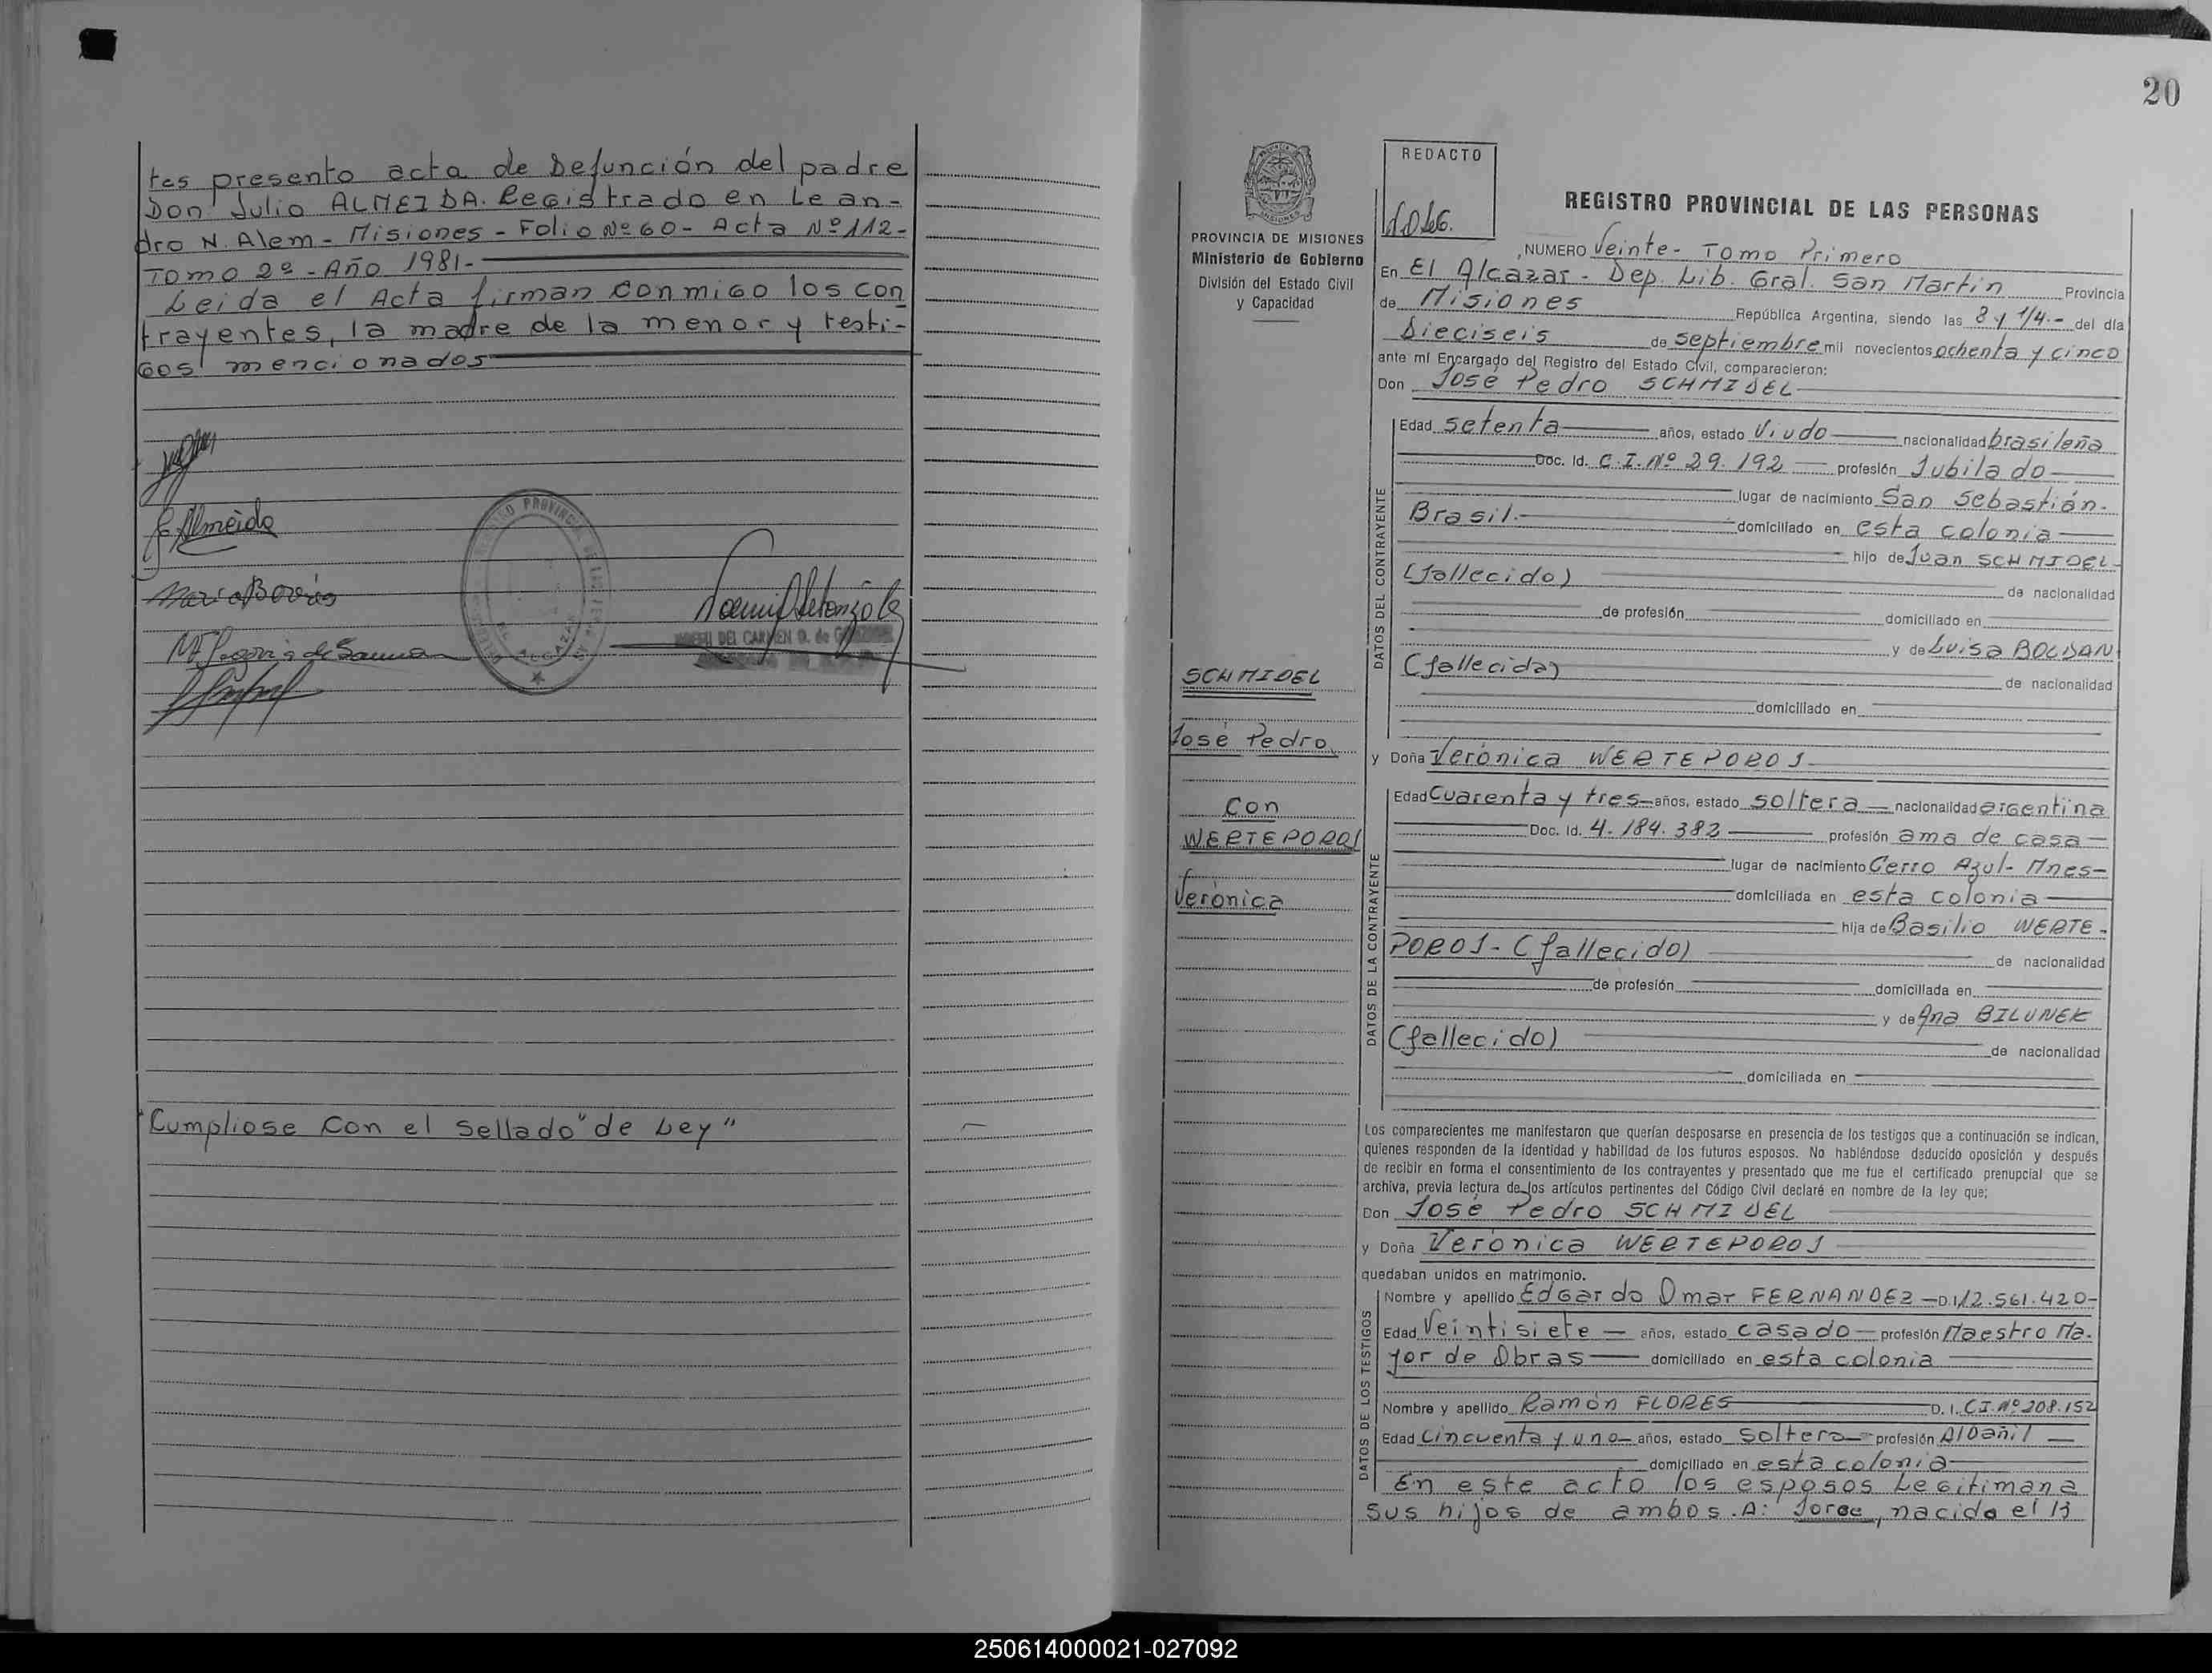 tes presento acta de Defunción del padre
Don Julio ALMEIDA. Registrado en Lean-
dro N. Alem - Misiones - Folio Nº 60 - Acta Nº 112-
Tomo 2º - Año 1981-
Leida el Acta firman conmigo los con
trayentes, la madre de la menor y testi-
gos mencionados
Almeida
"Cumpliose con el sellado "de Ley"
20
PROVINCIA DE MISIONES
Ministerio de Gobierno
División del Estado Civil
y Capacidad
SCHMIDEL
José Pedro
Con
WERTEPOROJ
Verónica
REDACTO
REGISTRO PROVINCIAL DE LAS PERSONAS
NUMERO Veinte- Tomo Primero
En El Alcazar - Dep. Lib. Gral. San Martin Provincia
de Misiones República Argentina, siendo las 8 y 1/4.- del día
Dieciseis de septiembre mil novecientos ochenta y cinco
ante mí Encargado del Registro del Estado Civil, comparecieron:
Don José Pedro SCHMIDEL
DATOS DEL CONTRAYENTE
Edad setenta años, estado Viudo nacionalidad brasileña
Doc. Id. C.I. Nº 29.192 profesión Jubilado
lugar de nacimiento San Sebastián-
Brasil.- domiciliado en esta colonia
hijo de Juan SCHMIDEL-
(fallecido) de nacionalidad
de profesión domiciliado en
y de Luisa BOLDAN
(fallecida) de nacionalidad
domiciliado en
y Doña Verónica WERTEPOROJ
DATOS DE LA CONTRAYENTE
Edad Cuarenta y tres años, estado soltera nacionalidad argentina
Doc. Id. 4.184.382 profesión ama de casa
lugar de nacimiento Cerro Azul- Mnes-
domiciliada en esta colonia
hija de Basilio WERTE-
POROJ- (fallecido) de nacionalidad
de profesión domiciliada en
y de Ana BILUNEK
(fallecido) de nacionalidad
domiciliada en
Los comparecientes me manifestaron que querían desposarse en presencia de los testigos que a continuación se indican,
quienes responden de la identidad y habilidad de los futuros esposos. No habiéndose deducido oposición y después
de recibir en forma el consentimiento de los contrayentes y presentado que me fue el certificado prenupcial que se
archiva, previa lectura de los artículos pertinentes del Código Civil declaré en nombre de la ley que:
Don José Pedro SCHMIDEL
y Doña Verónica WERTEPOROJ
quedaban unidos en matrimonio.
DATOS DE LOS TESTIGOS
Nombre y apellido Edgardo Omar FERNANDEZ D.I. 12.561.420-
Edad Veintisiete años, estado casado profesión Maestro Ma-
yor de Obras domiciliado en esta colonia
Nombre y apellido Ramón FLORES D. I. C.I. Nº 208.152
Edad Cincuenta y uno años, estado soltero profesión Albañil
domiciliado en esta colonia
En este acto los esposos Legitiman a
sus hijos de ambos. A: Jorge, nacido el 13
250614000021-027092